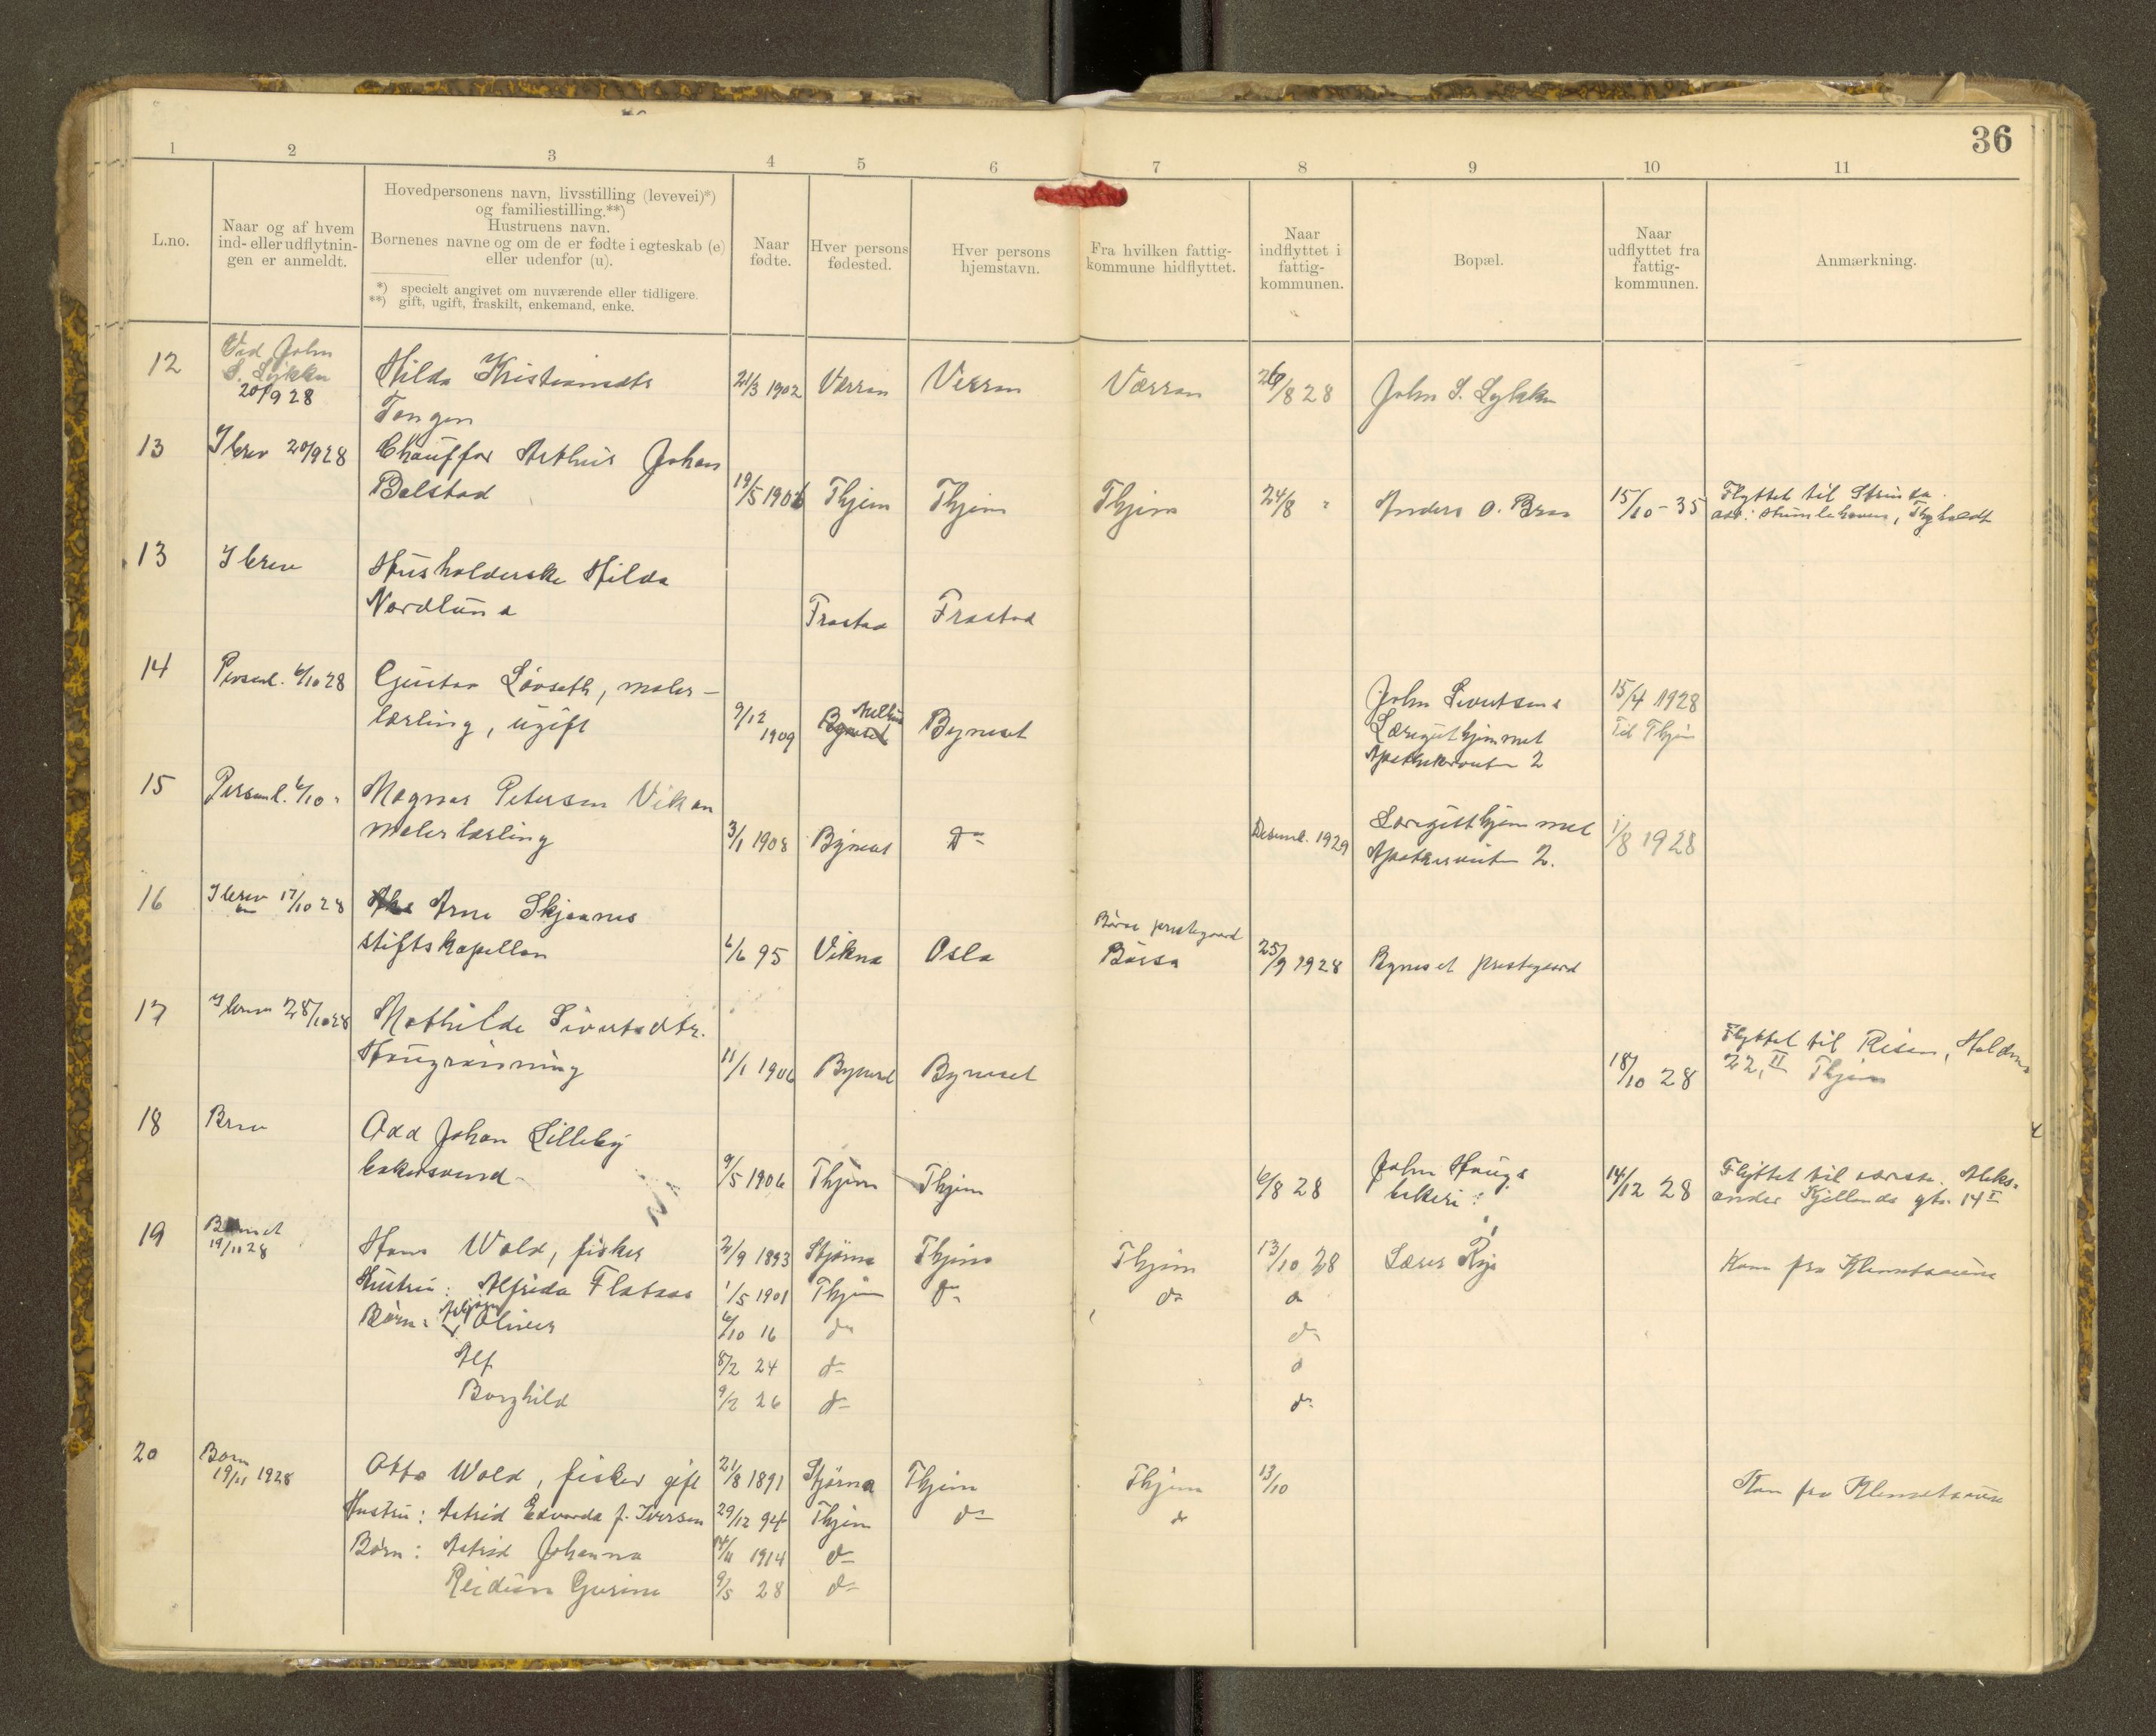 36
1 2 3 4 5 6 7 8 9 10 11
L.no.
Naar og af hvem
ind- eller udflytnin-
gen er anmeldt.
Hovedpersonens navn, livsstilling (levevei)*)
og familiestilling.**)
Hustruens navn.
Børnenes navne og om de er fødte i egteskab (e)
eller udenfor (u).
*) specielt angivet om nuværende eller tidligere.
**) gift, ugift, fraskilt, enkemand, enke.
Naar
fødte.
Hver persons
fødested.
Hver persons
hjemstavn.
Fra hvilken fattig-
kommune hidflyttet.
Naar
indflyttet i
fattig-
kommunen.
Bopæl.
Naar
udflyttet fra
fattig-
kommunen.
Anmærkning.
12
Ved John
S. Lykken
20/9 28
Hilda Kristiansdtr
Tangen
21/3 1902 Verran Verran Verran 26/8 28 John S. Lykken
13 I brev 20/9 28 Chauffør Arthur Johan
Balstad
19/5 1906 Thjem Thjem Thjem 24/8 " Anders O. Bran 15/10-35
Flyttet til Strinda
13 I brev Husholderske Hilda
Nordlund
Frostad Frostad
14 Personl. 6/10 28 Gustav Løvseth, maler-
lærling, ugift
9/12
1909
Byneset Byneset
John Sivertsens
Læreguthjemmet
Apothekerveiten 2
15/4 1928
Til Thjem
15 Personl. 6/10 " Magnar Petersen Vikan
malerlærling
3/1 1908 Byneset do Desemb. 1929
Læregutthjemmet
Apotekerveiten 2.
1/8 1928
16 I brev 17/10 28 Arne Skjaanes
stiftskapellan
6/6 95 Vikna Oslo
Børse prestegaard
Børsa
25/9 1928 Byneset prestegaard
17 I brev 28/10 28 Mathilde Sivertsdtr.
Haugrønning
11/1 1906 Byneset Byneset
18/10 28
Flyttet til Risan,
22, II Thjem
18 Brev Odd Johan Lilleby
bakersvend
9/5 1906 Thjem Thjem 6/8 28
John Haugs
bakeri
14/12 28
Flyttet til Aleks-
ander Kjellands gt. 14 I
19
19/11 28
Hans Wold, fisker 2/9 1893 Stjørna Thjem Thjem 13/10 28 Rye Kom fra Klemetsaune
Hustru: Alfrida Flataas 1/5 1901 Thjem do do do
Børn: Oliver 6/10 16 do do
Alf 8/2 24 do do
Borghild 9/2 26 do do
20
19/11 1928
Otto Wold, fisker gift 21/8 1891 Stjørna Thjem Thjem 13/10 Kom fra Klemetsaune
Hustru: Astrid Edvarda f. Iversen 29/12 94 Thjem do do
Børn: Astrid Johanna 14/11 1914 do
Reidun Gurine 9/5 28 do